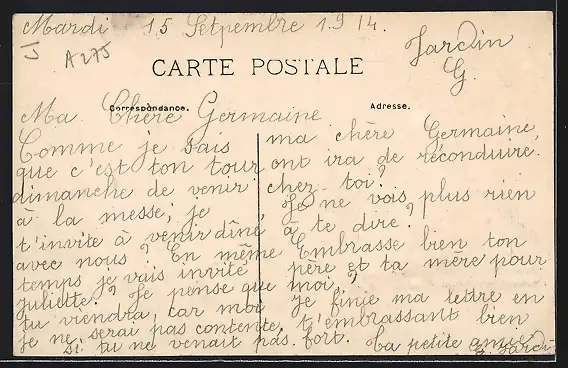 Mardi 15 Setpembre 1914.
A 275
Jardin
G.
CARTE POSTALE
Correspondance.
Adresse.
Ma Chère Germaine
Comme je sais
que c'est ton tour
dimanche de venir
à la messe; je
t'invite à venir dîné
avec nous? En même
temps je vais invité
juliette? Je pense que
tu viendra, car moi
je ne serai pas contente,
si tu ne venait pas
ma chère Germaine,
ont ira de réconduire.
chez toi?
Je ne vois plus rien
à te dire?
Embrasse bien ton
père et ta mère pour
moi,?
Je finie ma lettre en
t'embrassant bien
fort. Ta petite amie
G. Jardi